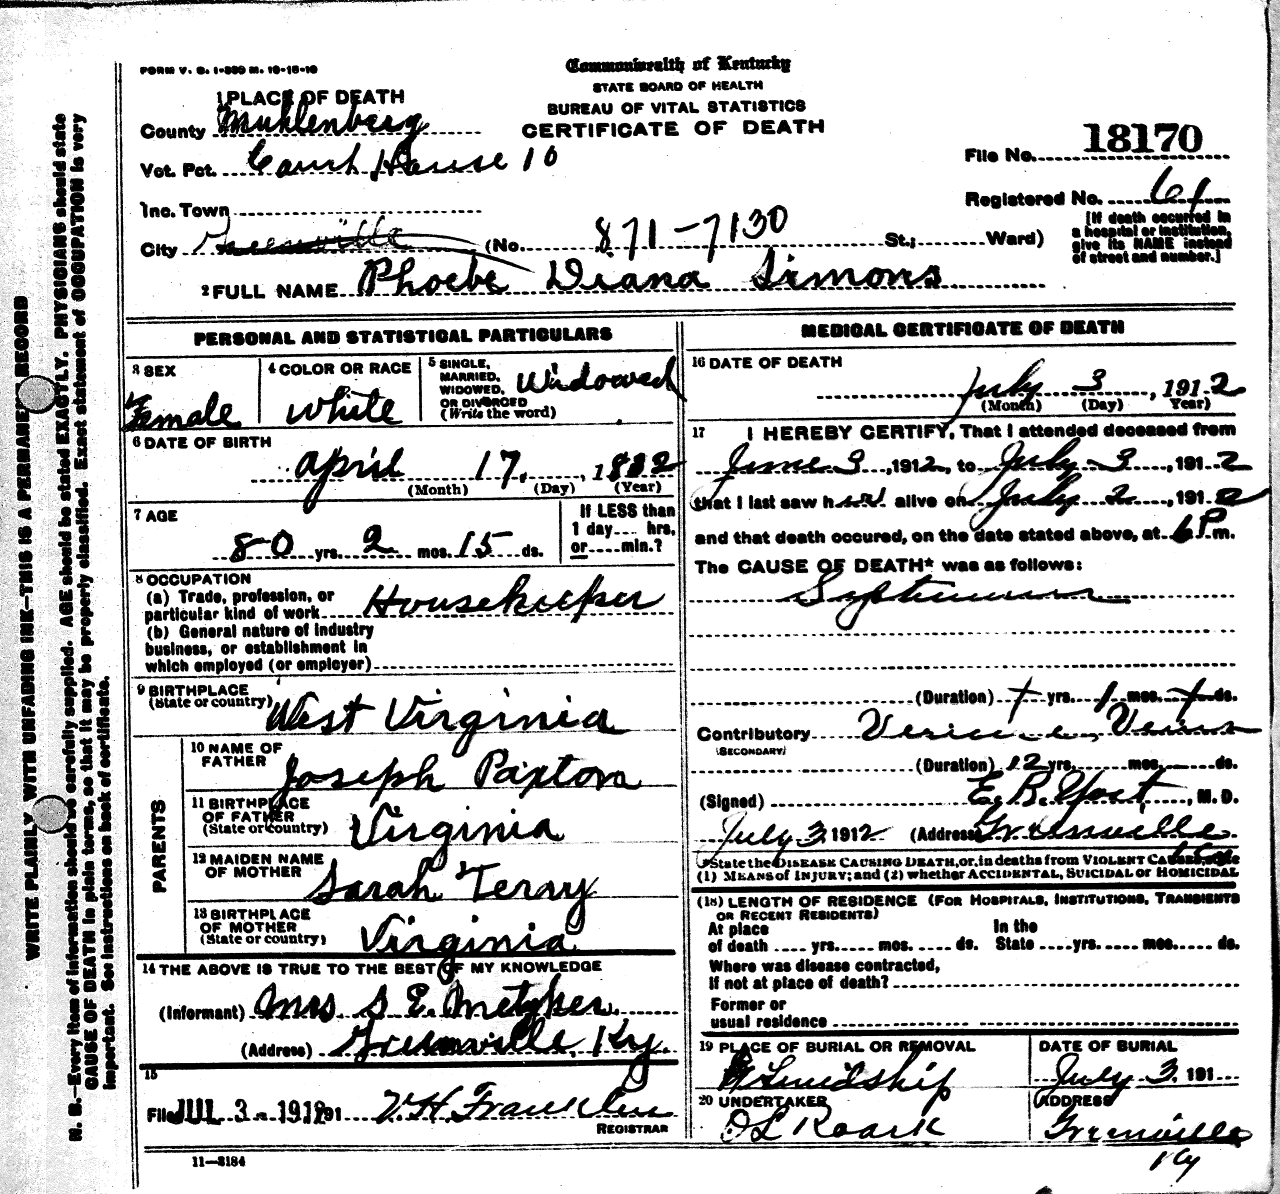 FORM V. S. 1-350 M. 10-18-10
Commonwealth of Kentucky
STATE BOARD OF HEALTH
BUREAU OF VITAL STATISTICS
CERTIFICATE OF DEATH
1 PLACE OF DEATH
County Muhlenberg
Vot. Pct. Court House 10
Inc. Town
City Greenville (No. 871-7130 St.; Ward)
File No. 18170
Registered No. 61
[If death occurred in
a hospital or institution,
give its NAME instead
of street and number.]
2 FULL NAME Phoebe Diana Simons
PERSONAL AND STATISTICAL PARTICULARS
3 SEX
Female
4 COLOR OR RACE
White
5 SINGLE,
MARRIED,
WIDOWED,
OR DIVORCED
(Write the word)
Widowed
6 DATE OF BIRTH
April 17, 1832
(Month) (Day) (Year)
7 AGE
80 yrs. 2 mos. 15 ds.
If LESS than
1 day.... hrs.
or.....min.?
8 OCCUPATION
(a) Trade, profession, or
particular kind of work Housekeeper
(b) General nature of industry
business, or establishment in
which employed (or employer)
9 BIRTHPLACE
(State or country) West Virginia
PARENTS
10 NAME OF
FATHER Joseph Paxton
11 BIRTHPLACE
OF FATHER
(State or country) Virginia
12 MAIDEN NAME
OF MOTHER Sarah Terry
13 BIRTHPLACE
OF MOTHER
(State or country) Virginia
14 THE ABOVE IS TRUE TO THE BEST OF MY KNOWLEDGE
(Informant) Mrs S. E. Metzker
(Address) Greenville, Ky.
15
Filed JUL 3 - 1912 191 V. H. Franklin
REGISTRAR
11—3184
MEDICAL CERTIFICATE OF DEATH
16 DATE OF DEATH
July 3, 1912
(Month) (Day) Year)
17 I HEREBY CERTIFY, That I attended deceased from
June 3, 1912, to July 3, 1912
that I last saw her alive on July 2, 1912
and that death occured, on the date stated above, at 6 P m.
The CAUSE OF DEATH* was as follows:
(Duration) yrs. 1 mos. ds.
Contributory
(SECONDARY)
(Duration) 12 yrs. mos. ds.
(Signed) E. B. Yost, M. D.
July 3 1912 (Address) Greenville
*State the DISEASE CAUSING DEATH, or, in deaths from VIOLENT CAUSES, state
(1) MEANS of INJURY; and (2) whether ACCIDENTAL, SUICIDAL or HOMICIDAL
(18) LENGTH OF RESIDENCE (FOR HOSPITALS, INSTITUTIONS, TRANSIENTS
OR RECENT RESIDENTS)
At place
of death .... yrs. mos. .... ds.
In the
State yrs. mos. ds.
Where was disease contracted,
if not at place of death?
Former or
usual residence
19 PLACE OF BURIAL OR REMOVAL
Friendship
DATE OF BURIAL
July 3, 191
20 UNDERTAKER
O L Roark
ADDRESS
Greenville
Ky
WRITE PLAINLY WITH UNFADING INK—THIS IS A PERMANENT RECORD
N. B.—Every item of information should be carefully supplied. AGE should be stated EXACTLY. PHYSICIANS should state
CAUSE OF DEATH in plain terms, so that it may be properly classified. Exact statement of OCCUPATION is very
important. See instructions on back of certificate.